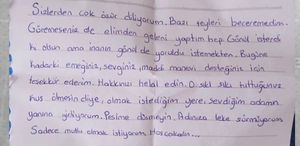 Sizlerden çok özür diliyorum. Bazı şeyleri beceremedim.
Görmeseniz de elimden geleni yaptım hep. Gönül isterdi
ki olsun ama insanın gönlü de yoruldu istemekten. Bugüne
kadarki emeğiniz, sevginiz, maddi manevi desteğiniz için
teşekkür ederim. Hakkınızı helal edin. O sıkı sıkı tuttuğunuz
kuş ölmesin diye, olmak istediğim yere, sevdiğim adamın
yanına gidiyorum. Peşime düşmeyin. Adınıza leke sürmüyorum
Sadece mutlu olmak istiyorum. Hoşçakalın...